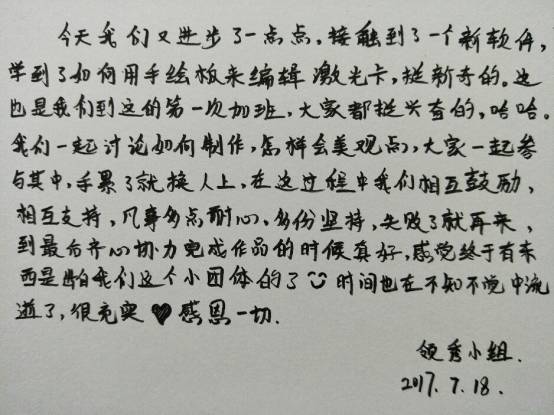 今天我们又进步了一点点，接触到了一个新软件，
学到了如何用手绘板来编辑激光卡，挺新奇的。这
也是我们到这的第一次加班，大家都挺兴奋的，哈哈。
我们一起讨论如何制作，怎样会美观点，大家一起参
与其中，手累了就换人上，在这过程中我们相互鼓励，
相互支持，凡事多点耐心，多份坚持，失败了就再来，
到最后齐心协力完成作品的时候真好，感觉终于有东
西是属于我们这个小团体的了 时间也在不知不觉中流
逝了，很充实 ♥ 感恩一切.
领秀小组.
2017.7.18.